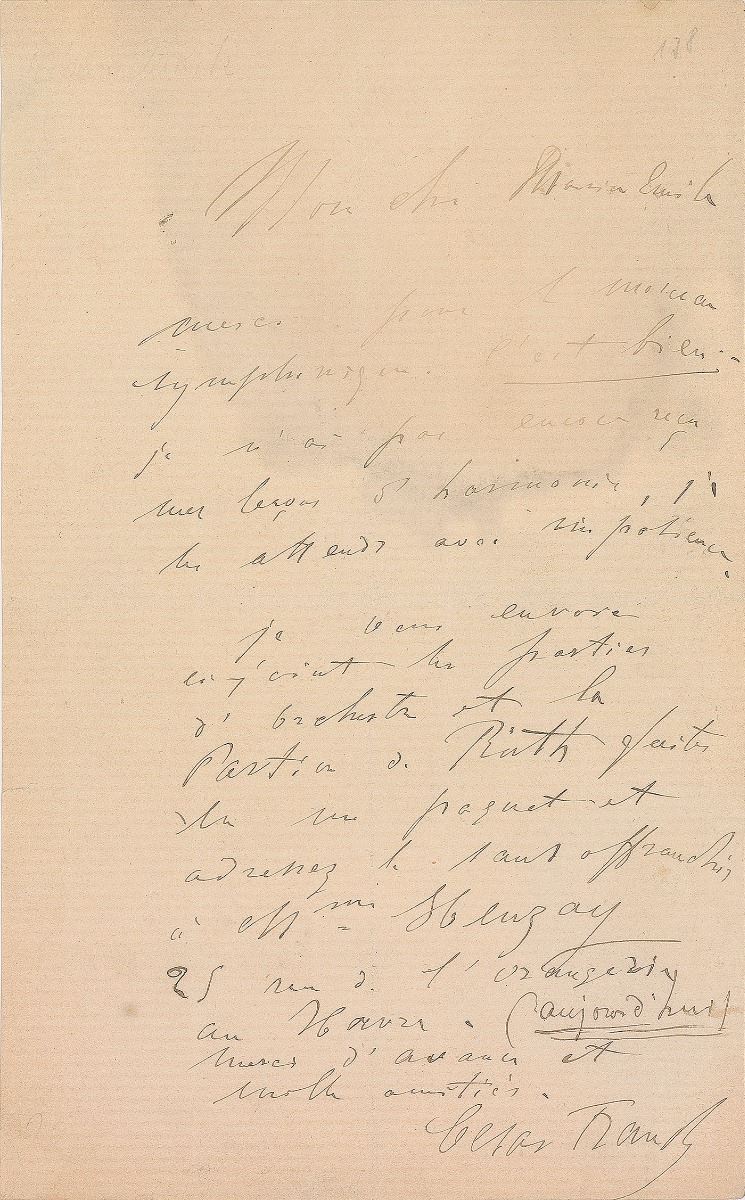 178
Mon cher Emile
merci pour le morceau
symphonique. C'est bien.
je n'ai pas encore reçu
mes leçons d'harmonie, j'
les attends avec impatience.
je vous envoie
ci-joint les parties
d'orchestre et la
Partion de Ruth faites
en un paquet et
adressez le sans affranchir
à Mme Henzay
25 rue de l'orangerie
au Havre. (aujourd'hui)
merci d'avance et
mille amitiés.
Cesar Franck